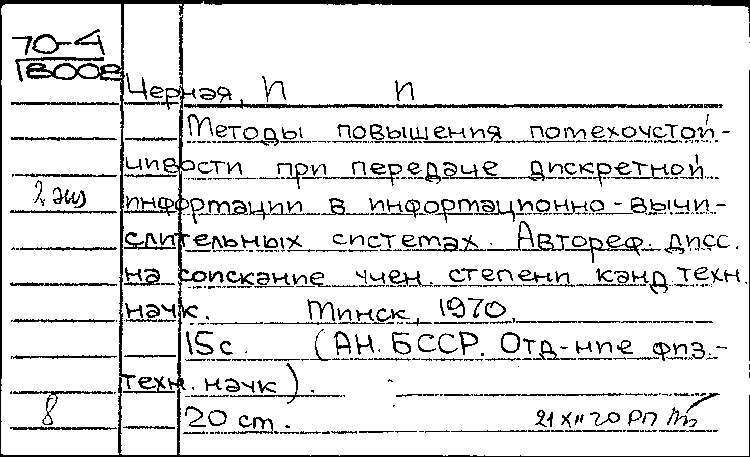 70-4
18008
Черная, И И
Методы повышения помехоустой-
чивости при передаче дискретной
2 экз
информации в информационно-вычи-
слительных системах. Автореф. дисс.
на соискание учен. степени канд техн.
наук. Минск, 1970.
15 с. (АН. БССР. Отд-ние физ.-
техн. наук).
8
20 см.